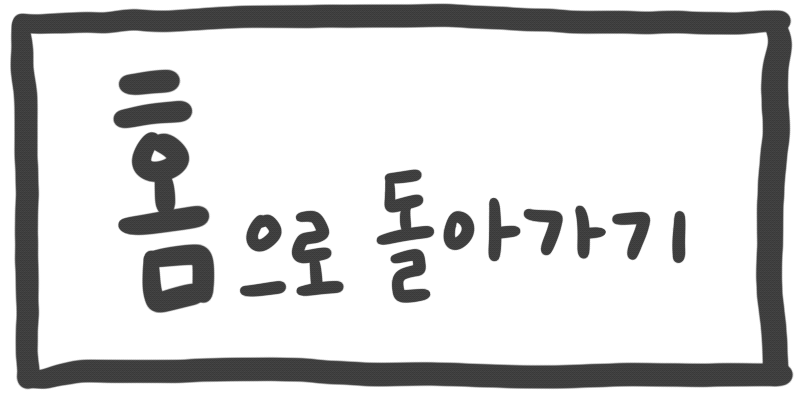 홈으로 돌아가기